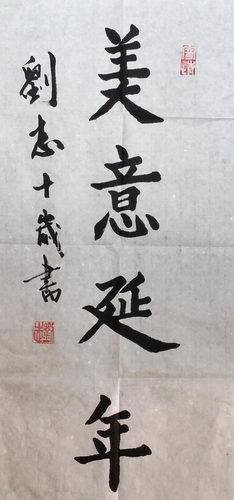 美意延年
劉志十歲書